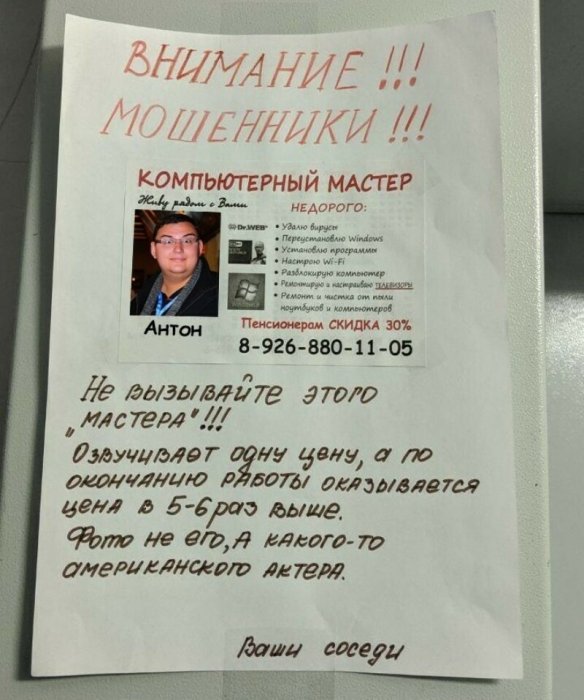 ВНИМАНИЕ !!!
МОШЕННИКИ !!!
КОМПЬЮТЕРНЫЙ МАСТЕР
Живу рядом с Вами
НЕДОРОГО:
Dr.WEB
• Удалю вирусы
• Переустановлю Windows
• Установлю программы
• Настрою Wi-Fi
• Разблокирую компьютер
• Ремонтирую и настраиваю ТЕЛЕВИЗОРЫ
• Ремонт и чистка от пыли
ноутбуков и компьютеров
Антон
Пенсионерам СКИДКА 30%
8-926-880-11-05
Не вызывайте этого
„МАСТЕРА"!!!
Озвучивает одну цену, а по
окончанию работы оказывается
цена в 5-6 раз выше.
Фото не его, а какого-то
американского актера.
Ваши соседи